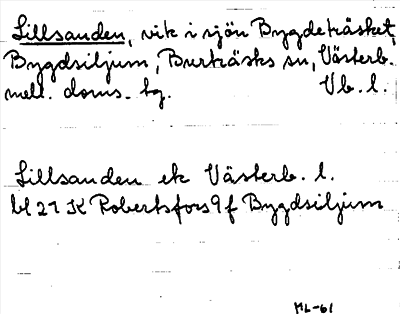 Lillsanden, vik i sjön Bygdeträsket,
Bygdsiljum, Burträsks sn, Västerb.
mell. doms. tg. Vb. l.
Lillsanden ek Västerb. l.
bl 21 K Robertsfors 9 f Bygdsiljum
ML-61